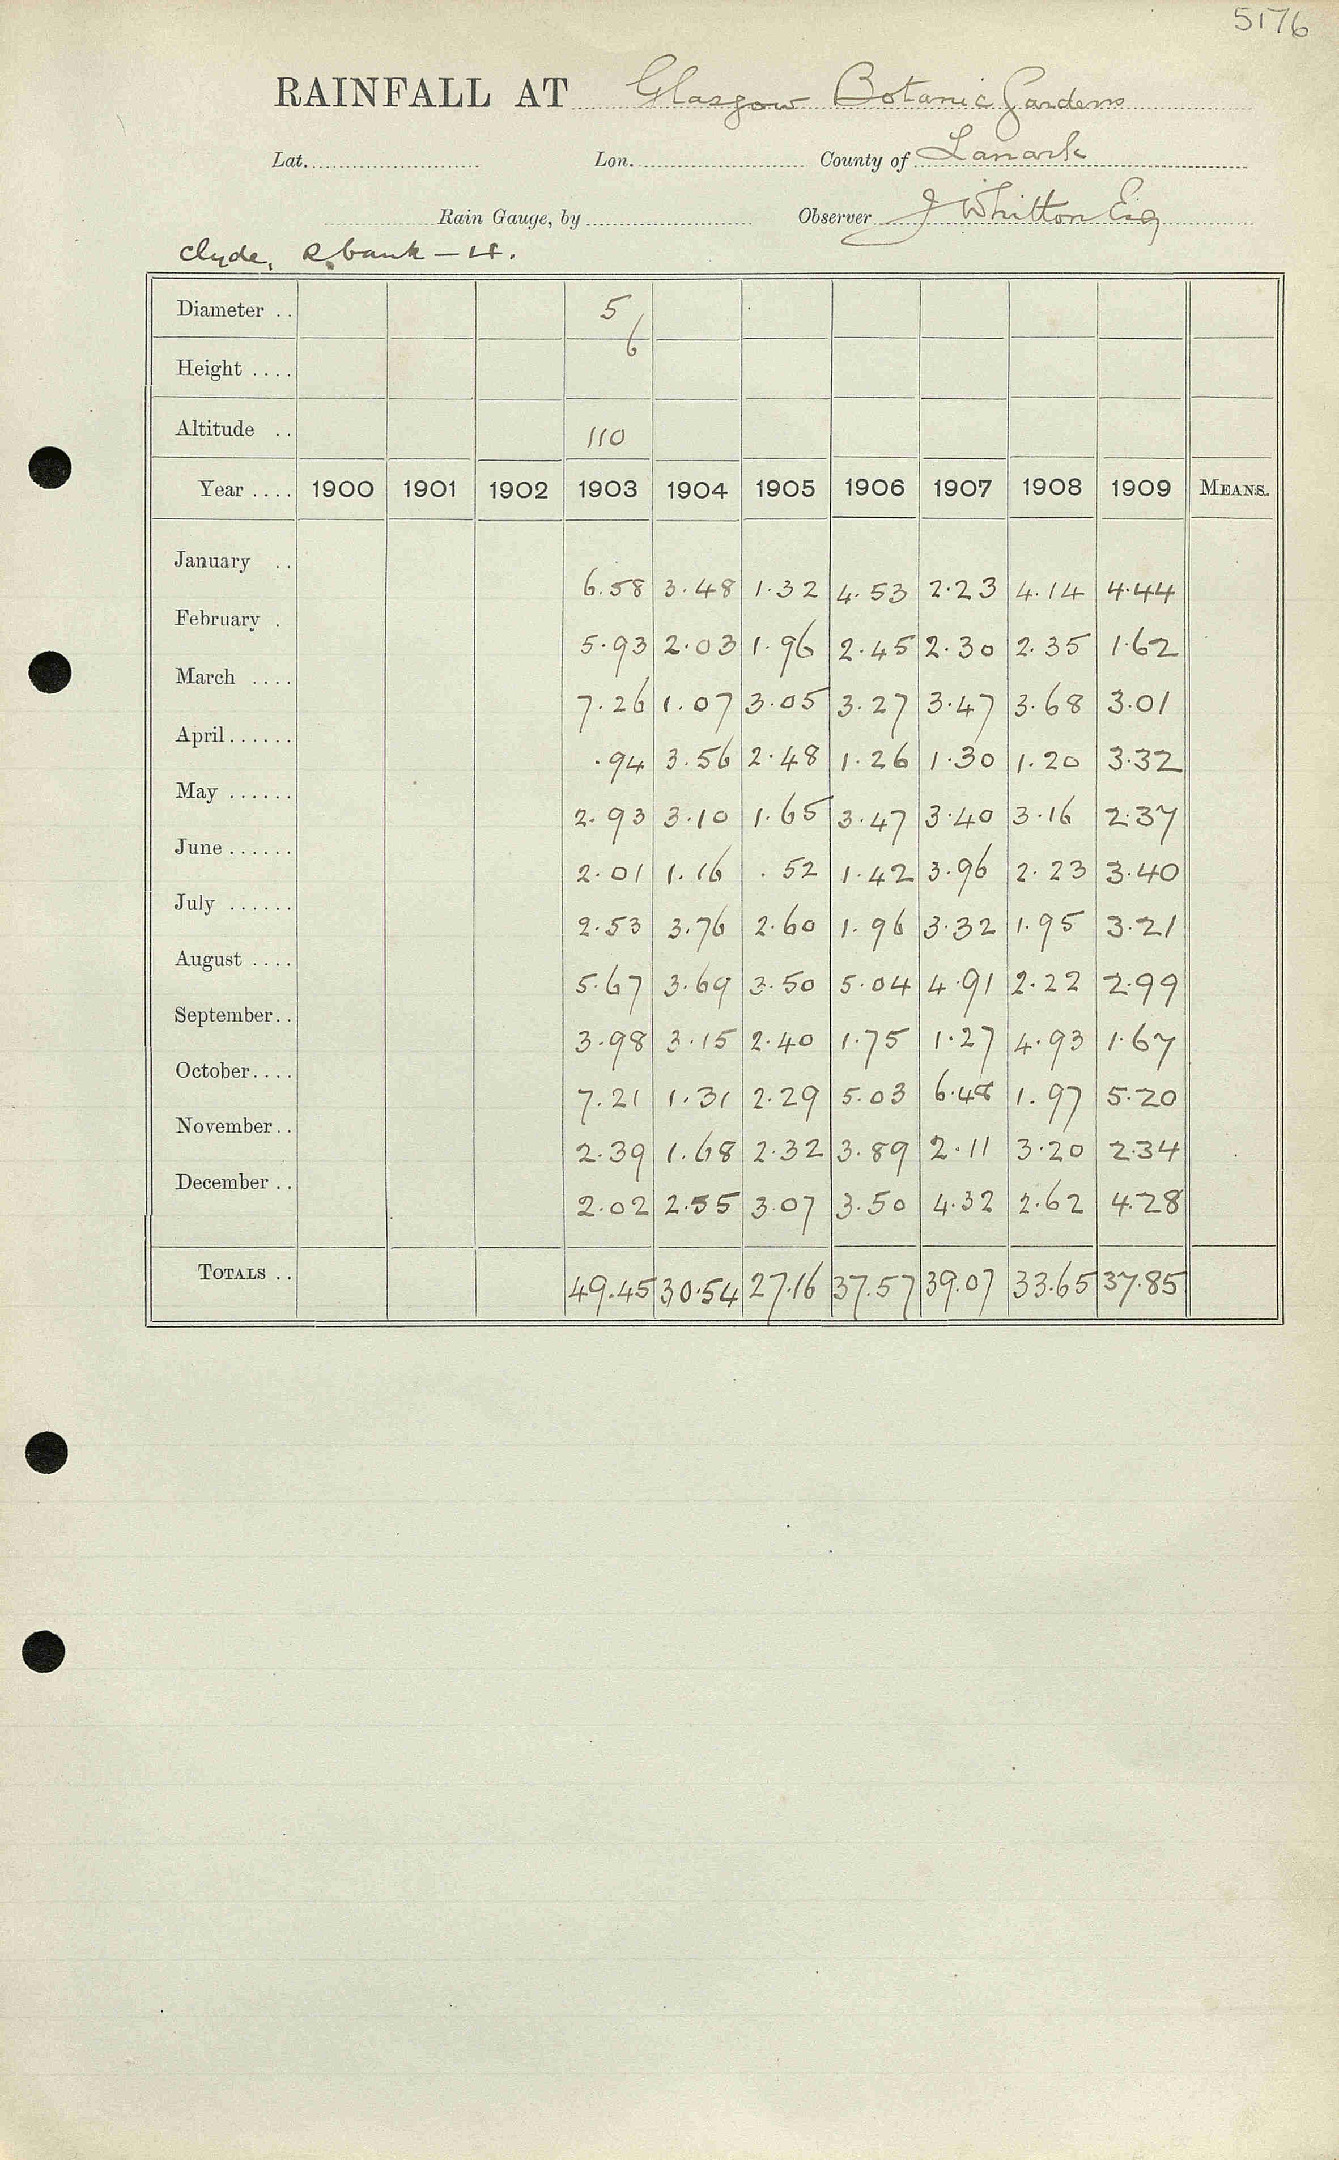 5176
RAINFALL AT Glasgow Botanic Gardens
Lat. Lon. County of Lanark
Rain Gauge, by Observer J Whitton Esq
Clyde, R. bank – 4.
Diameter .. 5
Height .... 6
Altitude .. 110
Year .... 1900 1901 1902 1903 1904 1905 1906 1907 1908 1909 MEANS.
January .. 6.58 3.48 1.32 4.53 2.23 4.14 4.44
February . 5.93 2.03 1.96 2.45 2.30 2.35 1.62
March .... 7.26 1.07 3.05 3.27 3.47 3.68 3.01
April...... .94 3.56 2.48 1.26 1.30 1.20 3.32
May ...... 2.93 3.10 1.65 3.47 3.40 3.16 2.37
June...... 2.01 1.16 .52 1.42 3.96 2.23 3.40
July ...... 2.53 3.76 2.60 1.96 3.32 1.95 3.21
August .... 5.67 3.69 3.50 5.04 4.91 2.22 2.99
September.. 3.98 3.15 2.40 1.75 1.27 4.93 1.67
October.... 7.21 1.31 2.29 5.03 6.48 1.97 5.20
November.. 2.39 1.68 2.32 3.89 2.11 3.20 2.34
December .. 2.02 2.55 3.07 3.50 4.32 2.62 4.28
TOTALS .. 49.45 30.54 27.16 37.57 39.07 33.65 37.85